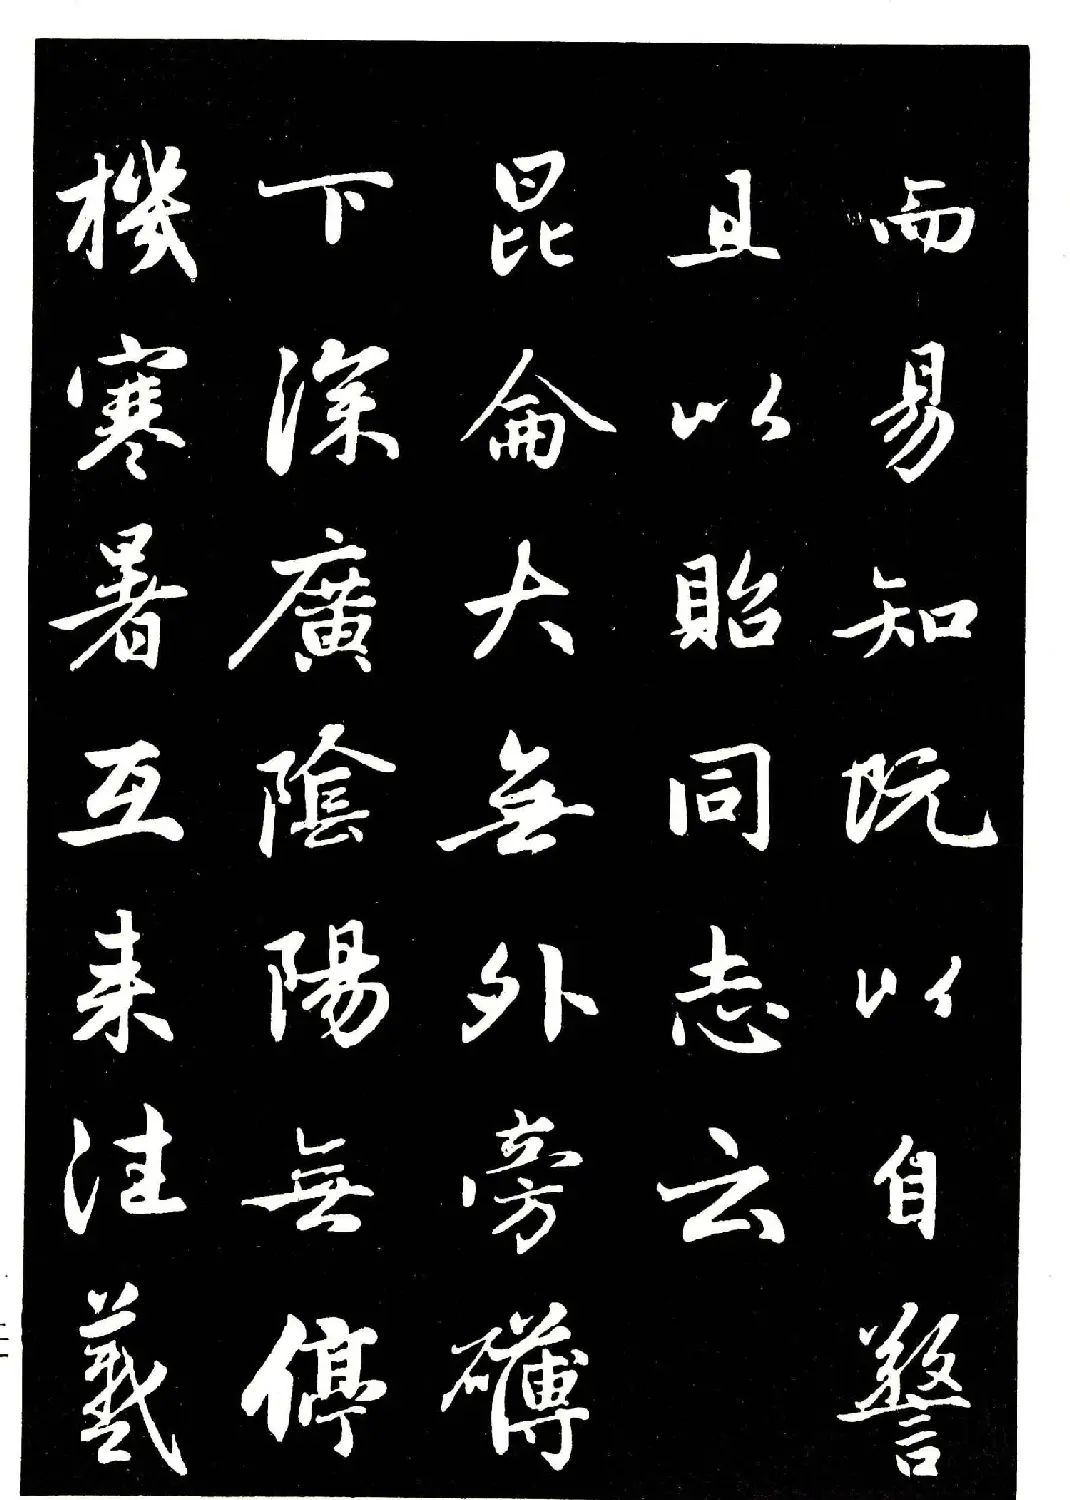 而易知既以自警
且以貽同志云
昆侖大無外旁礡
下深廣陰陽無停
機寒暑互来往羲